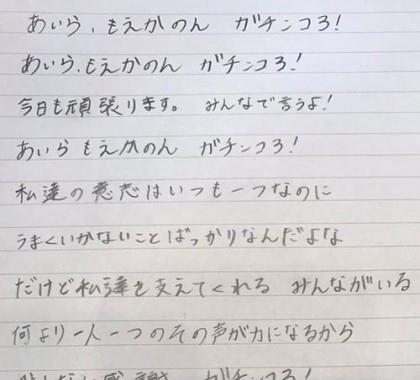 あいら、もえかのん ガチンコ3!
あいら、もえかのん ガチンコ3!
今日も頑張ります。 みんなで言うよ!
あいら もえかのん ガチンコ3!
私達の意志はいつも一つなのに
うまくいかないことばっかりなんだよな
だけど私達を支えてくれる みんながいる
何より一人一つのその声が力になるから
感謝 ガチンコ3!